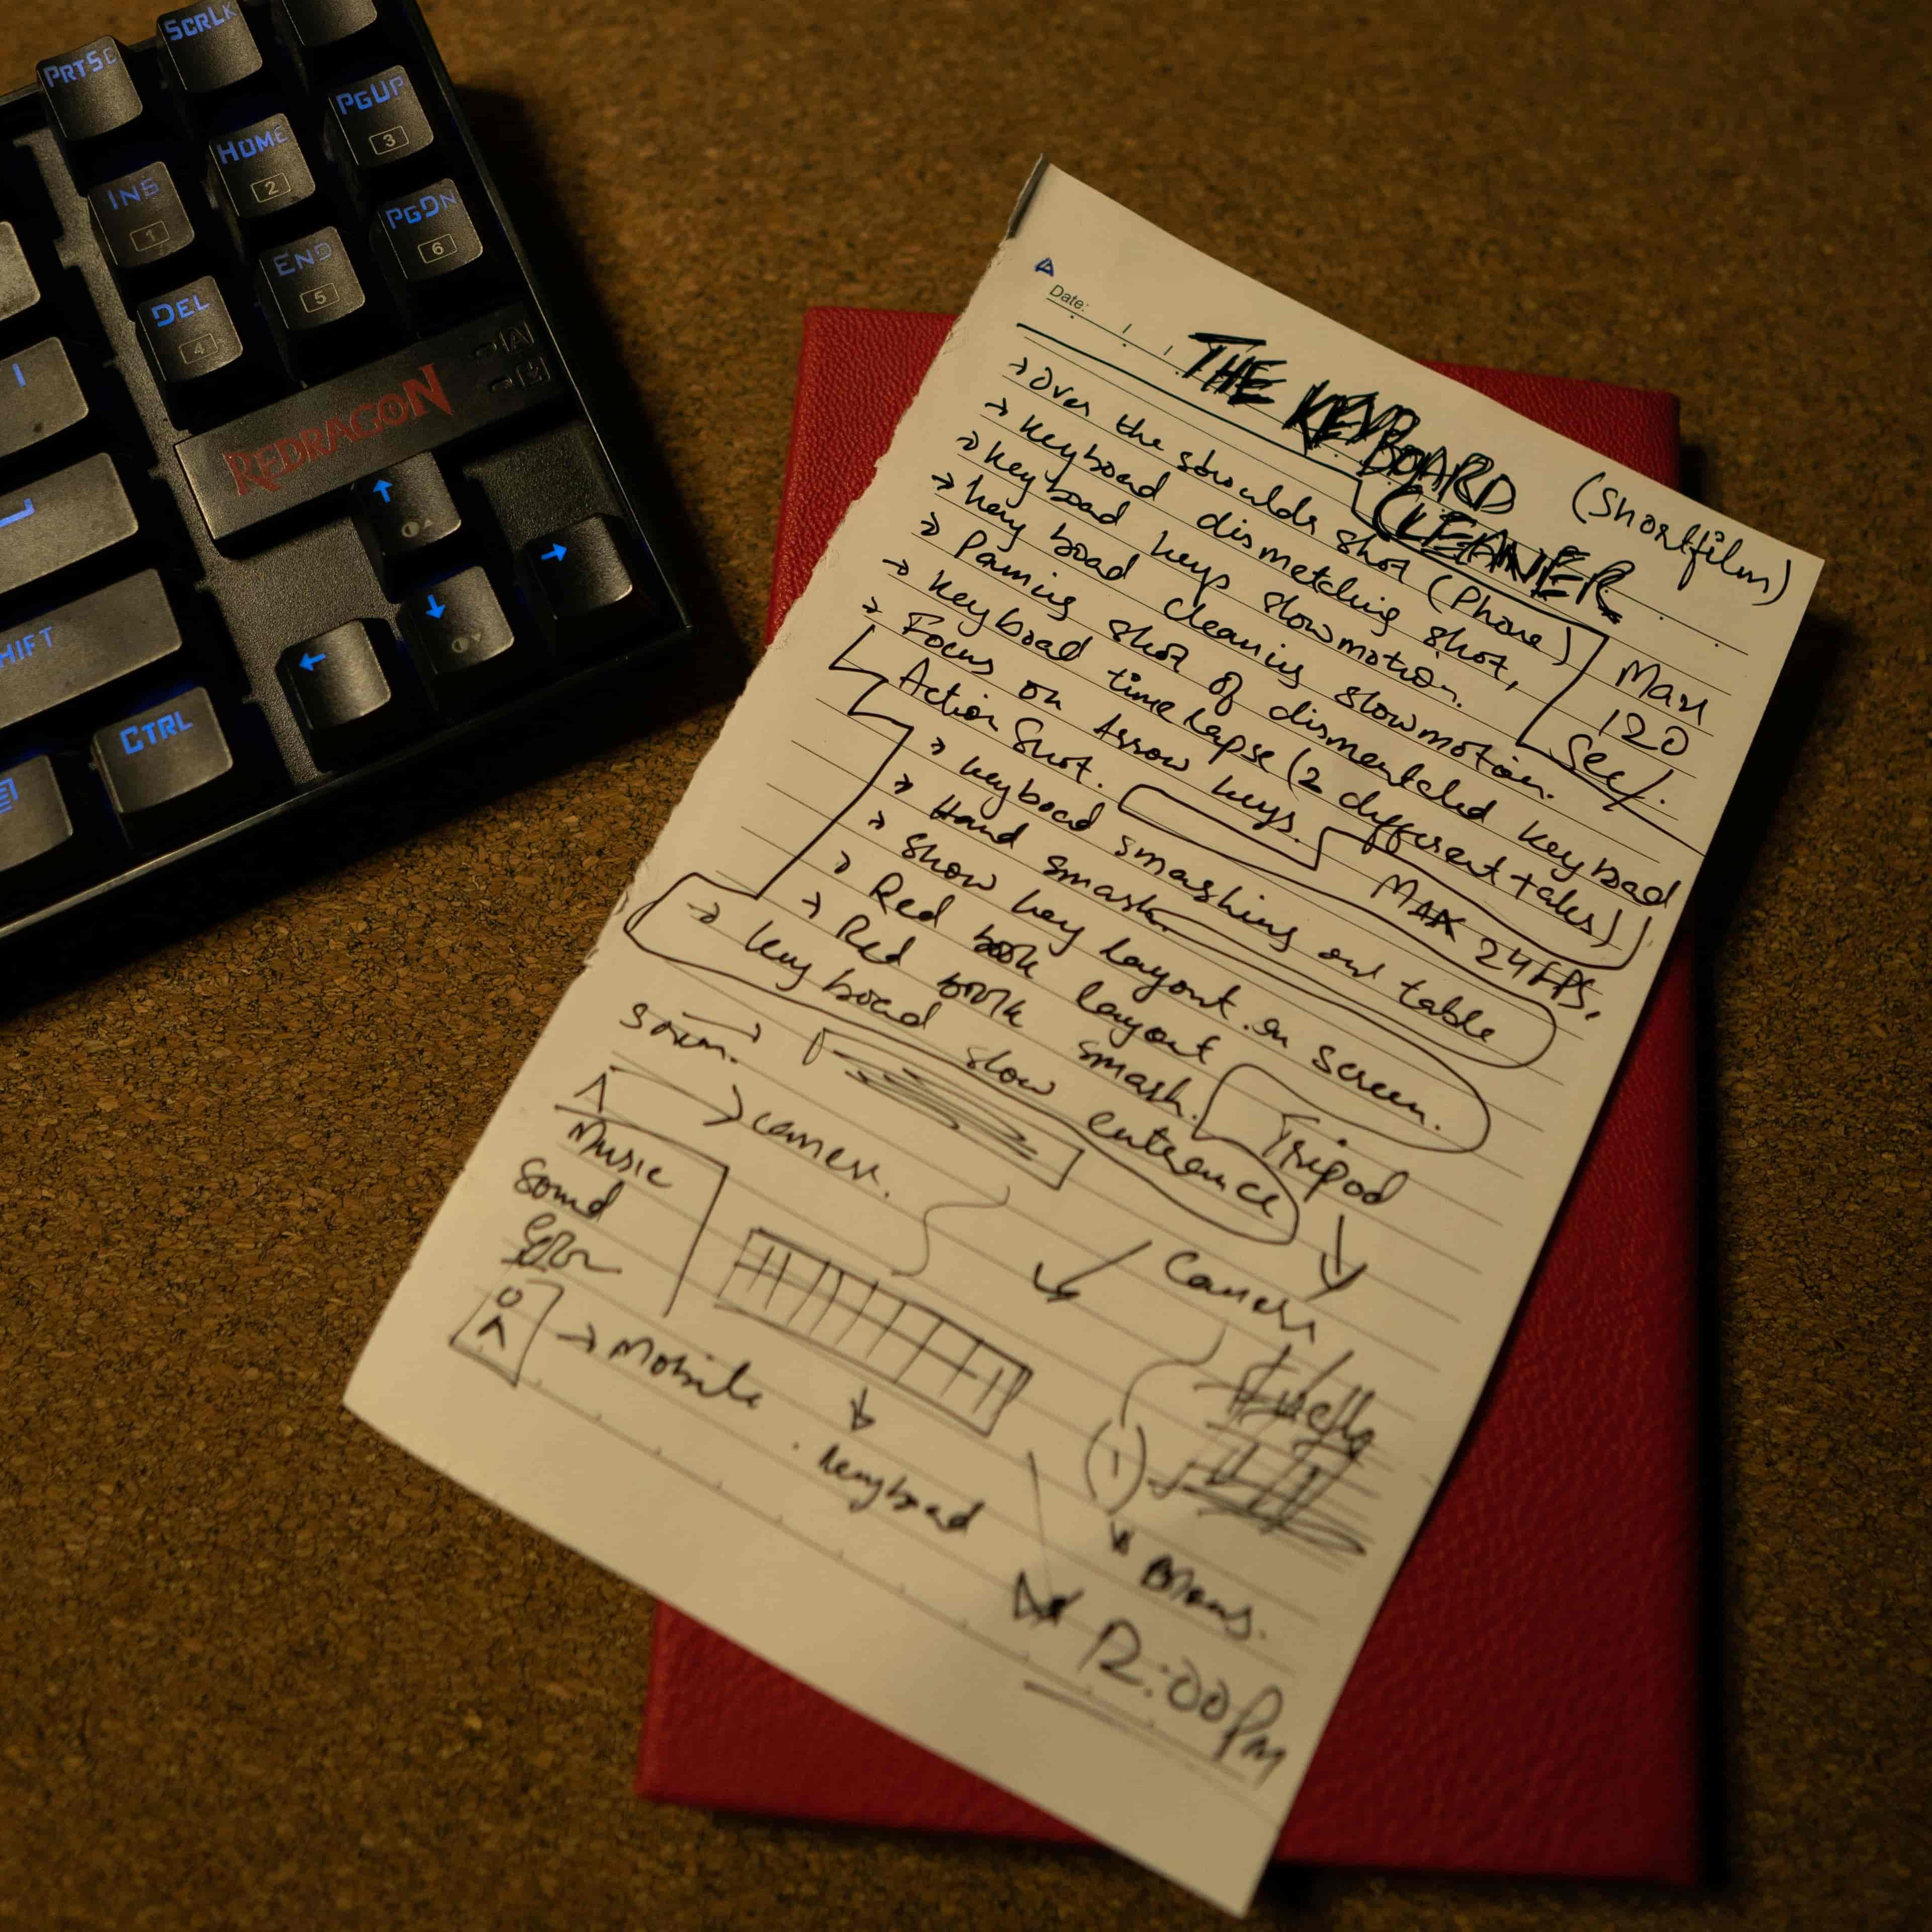 PRTSC
SCRLK
INS
1
HOME
2
PGUP
3
DEL
4
END
5
PGDN
6
REDRAGON
A
HIFT
CTRL
Date:
THE KEYBOARD
CLEANER
(Shortfilm)
→ Over the shoulder shot (Phone)
→ Keyboad dismetching shot,
→ keyboad keys slowmotion.
→ key boad cleaning slowmotion.
→ Paming shot of dismentcled keyboad
→ keyboad timelapse (2 different takes)
→ Focus on Arrow keys.
Action Shot.
Max
120
Sec/.
MAX 24FPS,
→ keyboad smashing ont table
→ Hand smash
→ show key layout on screen.
→ Red book layout
→ Red book smash.
→ keyboad slow enterance
Tripod
→ camera.
Music
Sound
Camera
→ Mobile
keyboad
12:00 Pm